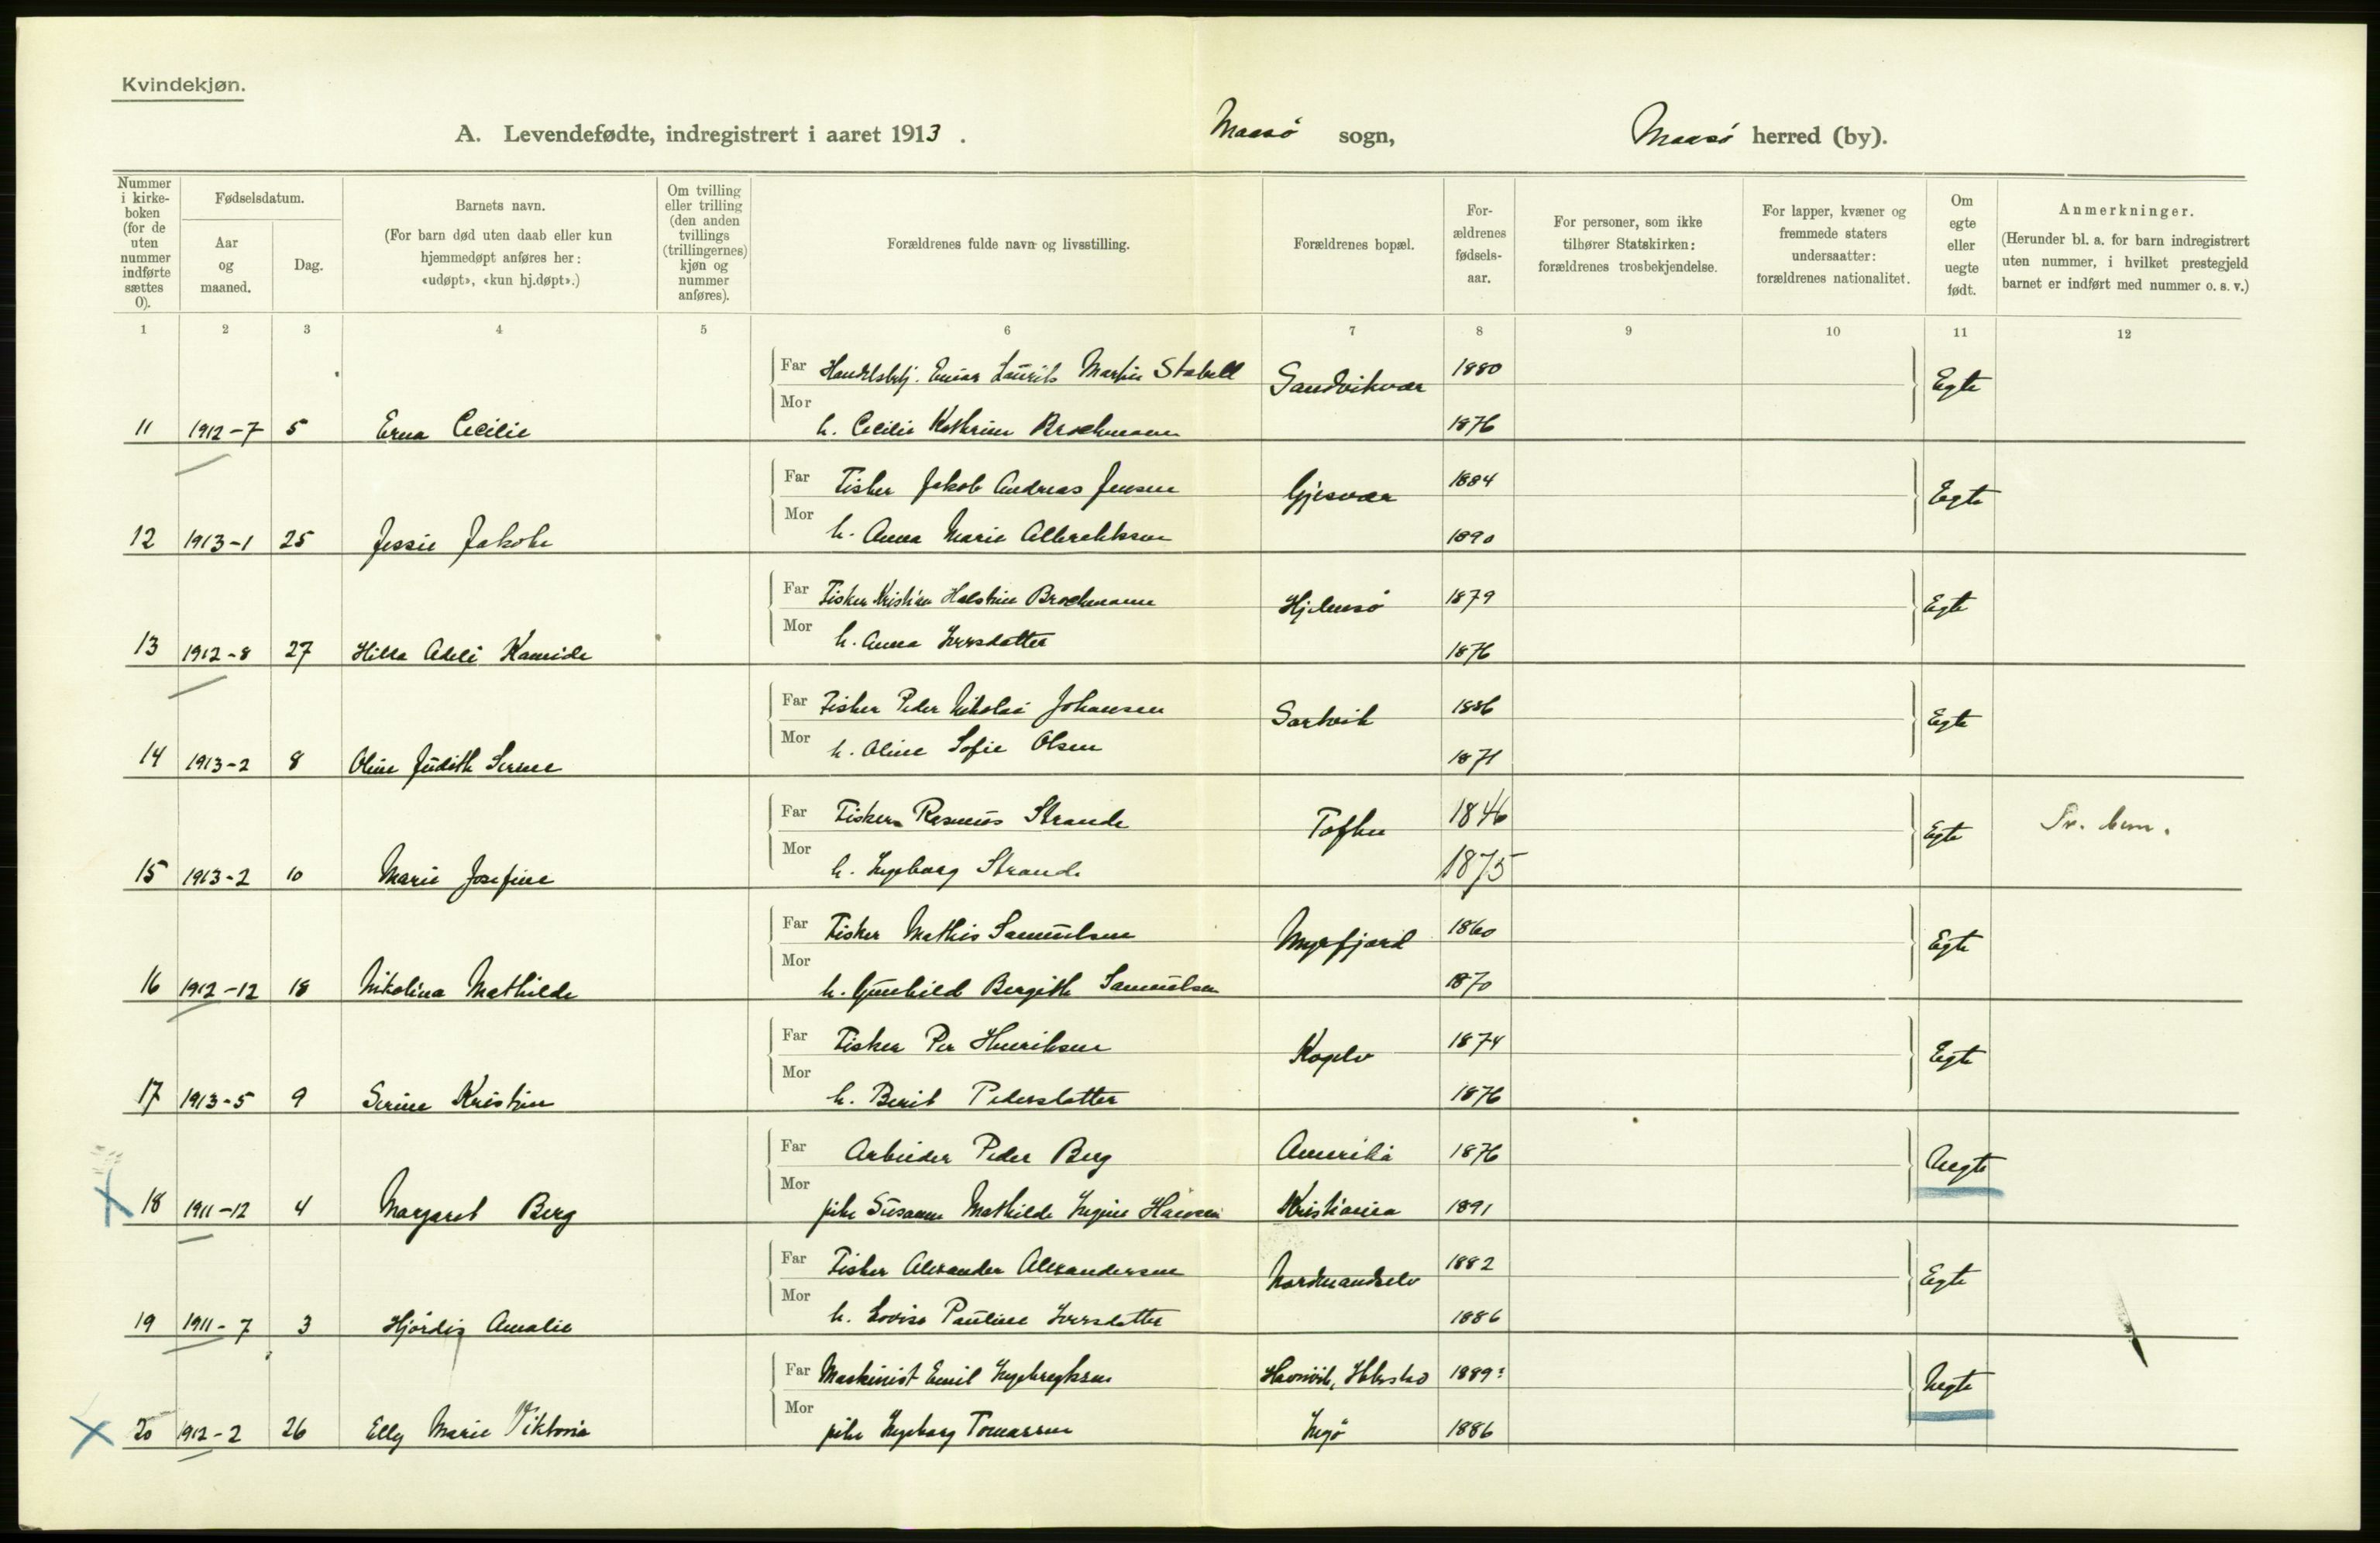 Kvindekjøn.
A. Levendefødte, indregistrert i aaret 1913. Maasø sogn, Maasø herred (by).
Nummer i kirkeboken (for de uten nummer indførte sættes 0).
Fødselsdatum.
Aar og maaned.
Dag.
Barnets navn.
(For barn død uten daab eller kun hjemmedøpt anføres her: «udøpt», «kun hj.døpt».)
Om tvilling eller trilling (den anden tvillings (trillingernes) kjøn og nummer anføres).
Forældrenes fulde navn og livsstilling.
Forældrenes bopæl.
Forældrenes fødselsaar.
For personer, som ikke tilhører Statskirken: forældrenes trosbekjendelse.
For lapper, kvæner og fremmede staters undersaatter: forældrenes nationalitet.
Om egte eller uegte født.
Anmerkninger.
(Herunder bl. a. for barn indregistrert uten nummer, i hvilket prestegjeld barnet er indført med nummer o. s. v.)
1 2 3 4 5 6 7 8 9 10 11 12
Far Handelsbetj. Einar Laurits Martin Stabell Sandvikvær 1880 Egte
Mor
11 1912-7 5 Erna Cecilie h. Cecilie Kathrine Brochmann 1876
Far Fisker Jakob Andreas Jensen Gjesvær 1884 Egte
Mor
12 1913-1 25 Jessie Jakobe h. Anna Marie Albrektsen 1890
Far Fisker Kristian Brochmann Hjelmsø 1879 Egte
Mor h. Anna Iversdatter
13 1912-8 27 Hilla Adele 1876
Far Fisker Peder Nikolai Johansen Sarvik 1886 Egte
Mor h. Oline Sofie Olsen
14 1913-2 8 Oline Judith 1871
Far Fisker Rasmus Strande 1846 Egte
Mor
15 1913-2 10 Marie Josefine h. Ingeborg Strande 1875
Far Fisker Mathis Samuelsen Myrfjord 1860 Egte
Mor
16 1912-12 18 Nikolina Mathilde h. Gunhild Bergith Samuelsen 1870
Far Fisker Per Henriksen 1874 Egte
Mor
17 1913-5 9 Serine Kristine h. Berit Pedersdatter 1876
Far Arbeider Peder Berg Amerika 1876 Uegte
Mor
18 1911-12 4 Margaret Berg pike Susanne Mathilde Hansen Kristiania 1891
Far Fisker Alexander Alexandersen Nordmandselv 1882 Egte
Mor
19 1911-7 3 Hjørdis Amalie h. Lovise Pauline Iversdatter 1886
Far Maskinist Emil Ingebregtsen 1889? Uegte
Mor
20 1912-2 26 Elly Marie Viktoria pike Ingeborg Tomassen Ingø 1886